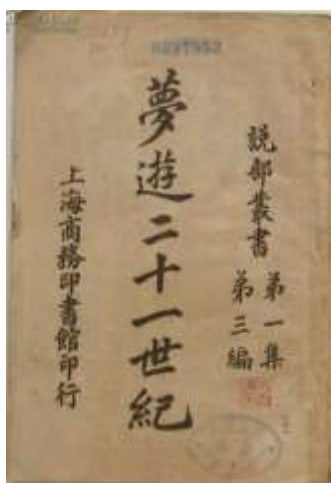 說部叢書
第一集
第三編
夢遊二十一世紀
上海商務印書館印行